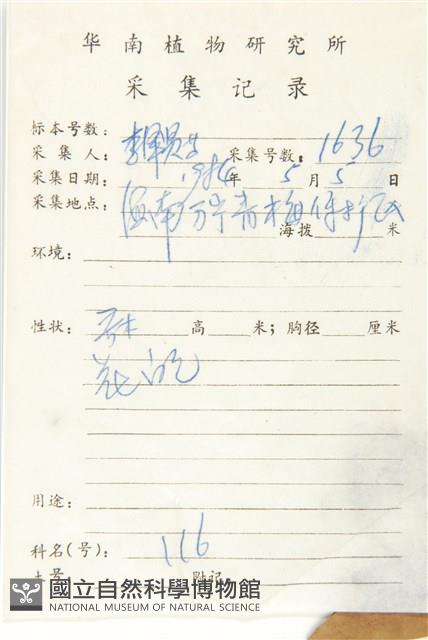 华南植物研究所
采集记录
标本号数:
采集人: 李泽贤 采集号数: 1636
采集日期: 年 5 月 5 日
采集地点: 海南万宁青梅保护区
海拨 米
环境:
性状: 乔木 高 米; 胸径 厘米
花
用途:
科名(号): 116
土号 附记
國立自然科學博物館
NATIONAL MUSEUM OF NATURAL SCIENCE